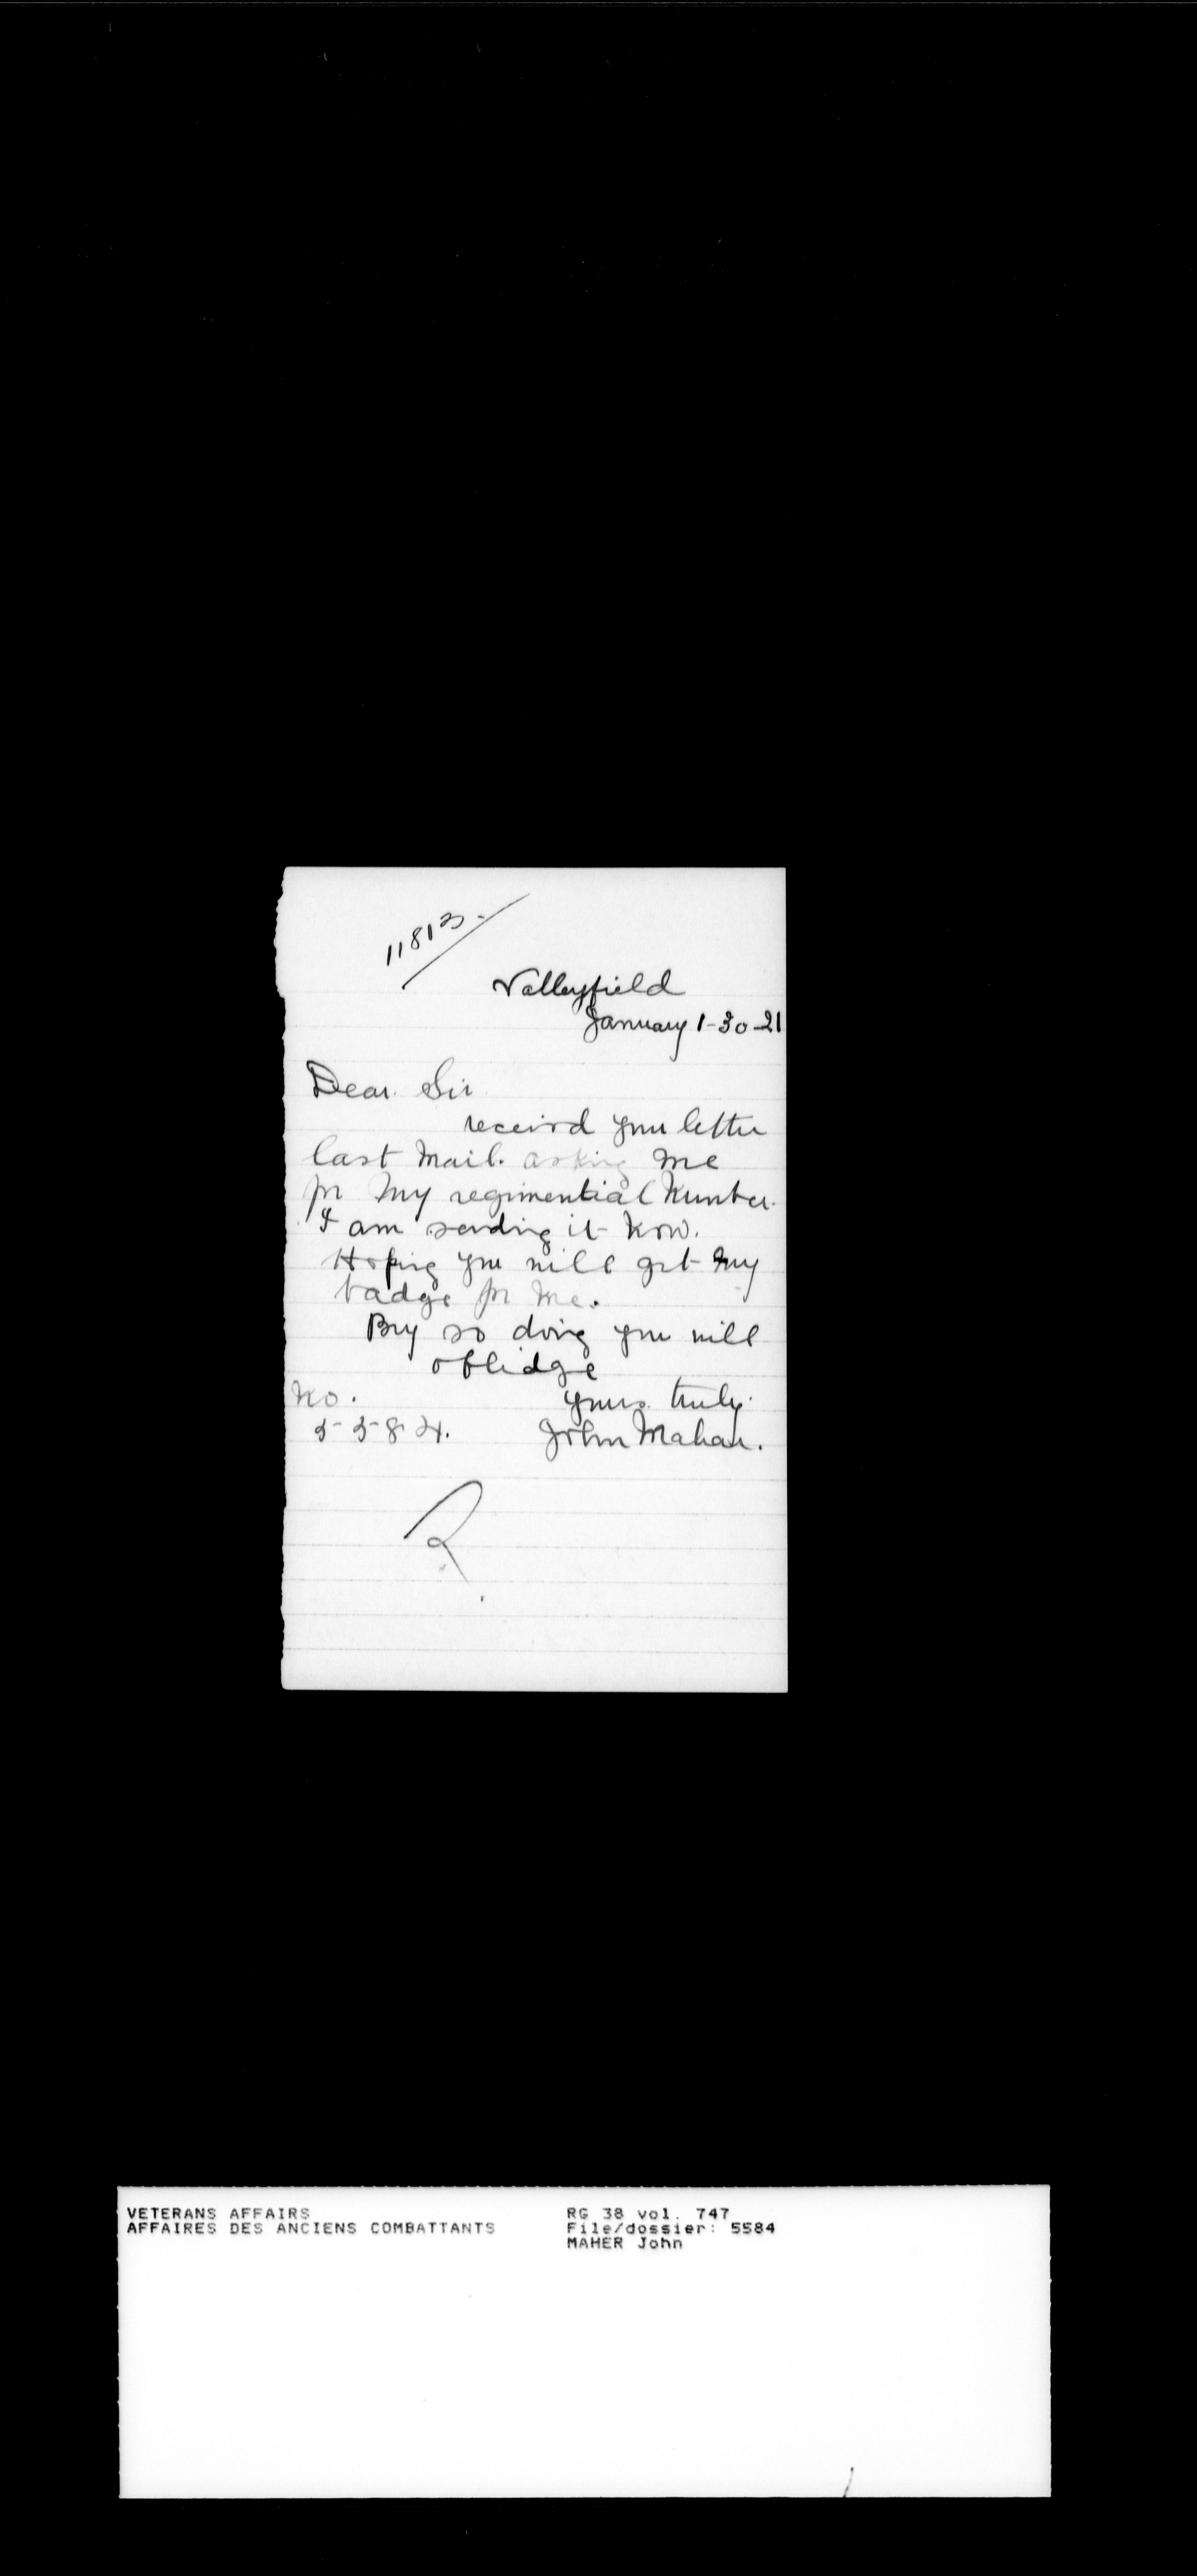 11813
Valleyfield
January 1-30-21
Dear. Sir
receivd your letter
last Mail. asking me
for my regimential Number.
I am sending it Now.
Hoping you will get my
badge for me.
By so doing you will
oblidge
No. yours. truly.
5584. John Mahar.
R
VETERANS AFFAIRS RG 38 vol. 747
AFFAIRES DES ANCIENS COMBATTANTS File/dossier: 5584
MAHER John